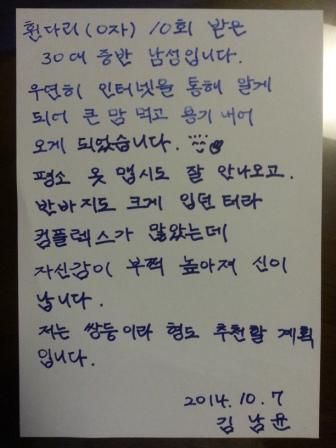 휜다리(O자) 10회 받은
30대 중반 남성입니다.
우연히 인터넷을 통해 알게
되어 큰 맘 먹고 용기 내어
오게 되었습니다.
평소 옷 맵시도 잘 안나오고.
반바지도 크게 입던 터라
컴플렉스가 많았는데
자신감이 부쩍 높아져 신이
납니다.
저는 쌍둥이라 형도 추천할 계획
입니다.
2014. 10. 7
김남윤